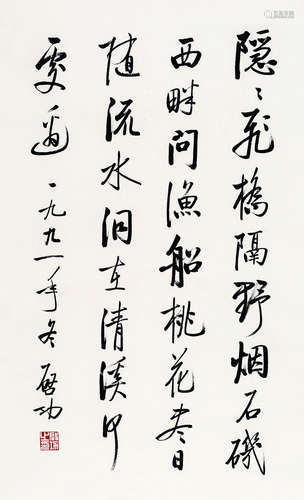 隱〻飛橋隔野烟石磯
西畔問漁船桃花盡日
随流水洞在清溪何
處邊 一九九一年冬 啓功